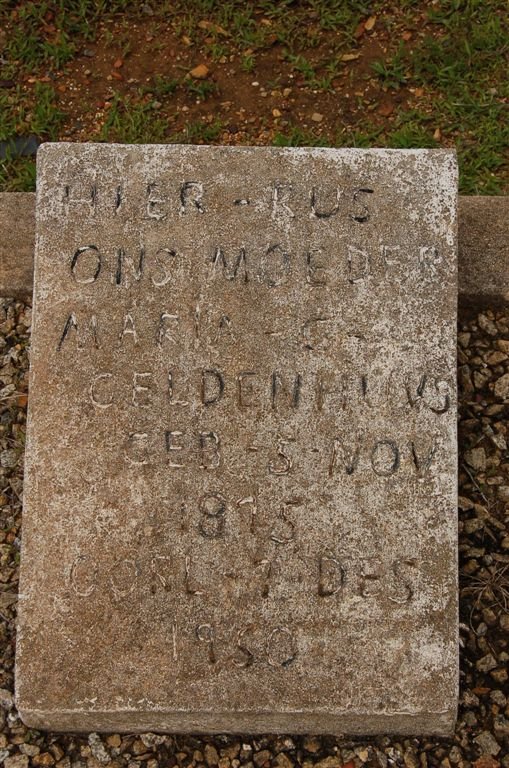 HIER - RUS
ONS MOEDER
MARIA - C -
GELDENHUYS
GEB - 5 - NOV
1875
OORL - 7 - DES
1950